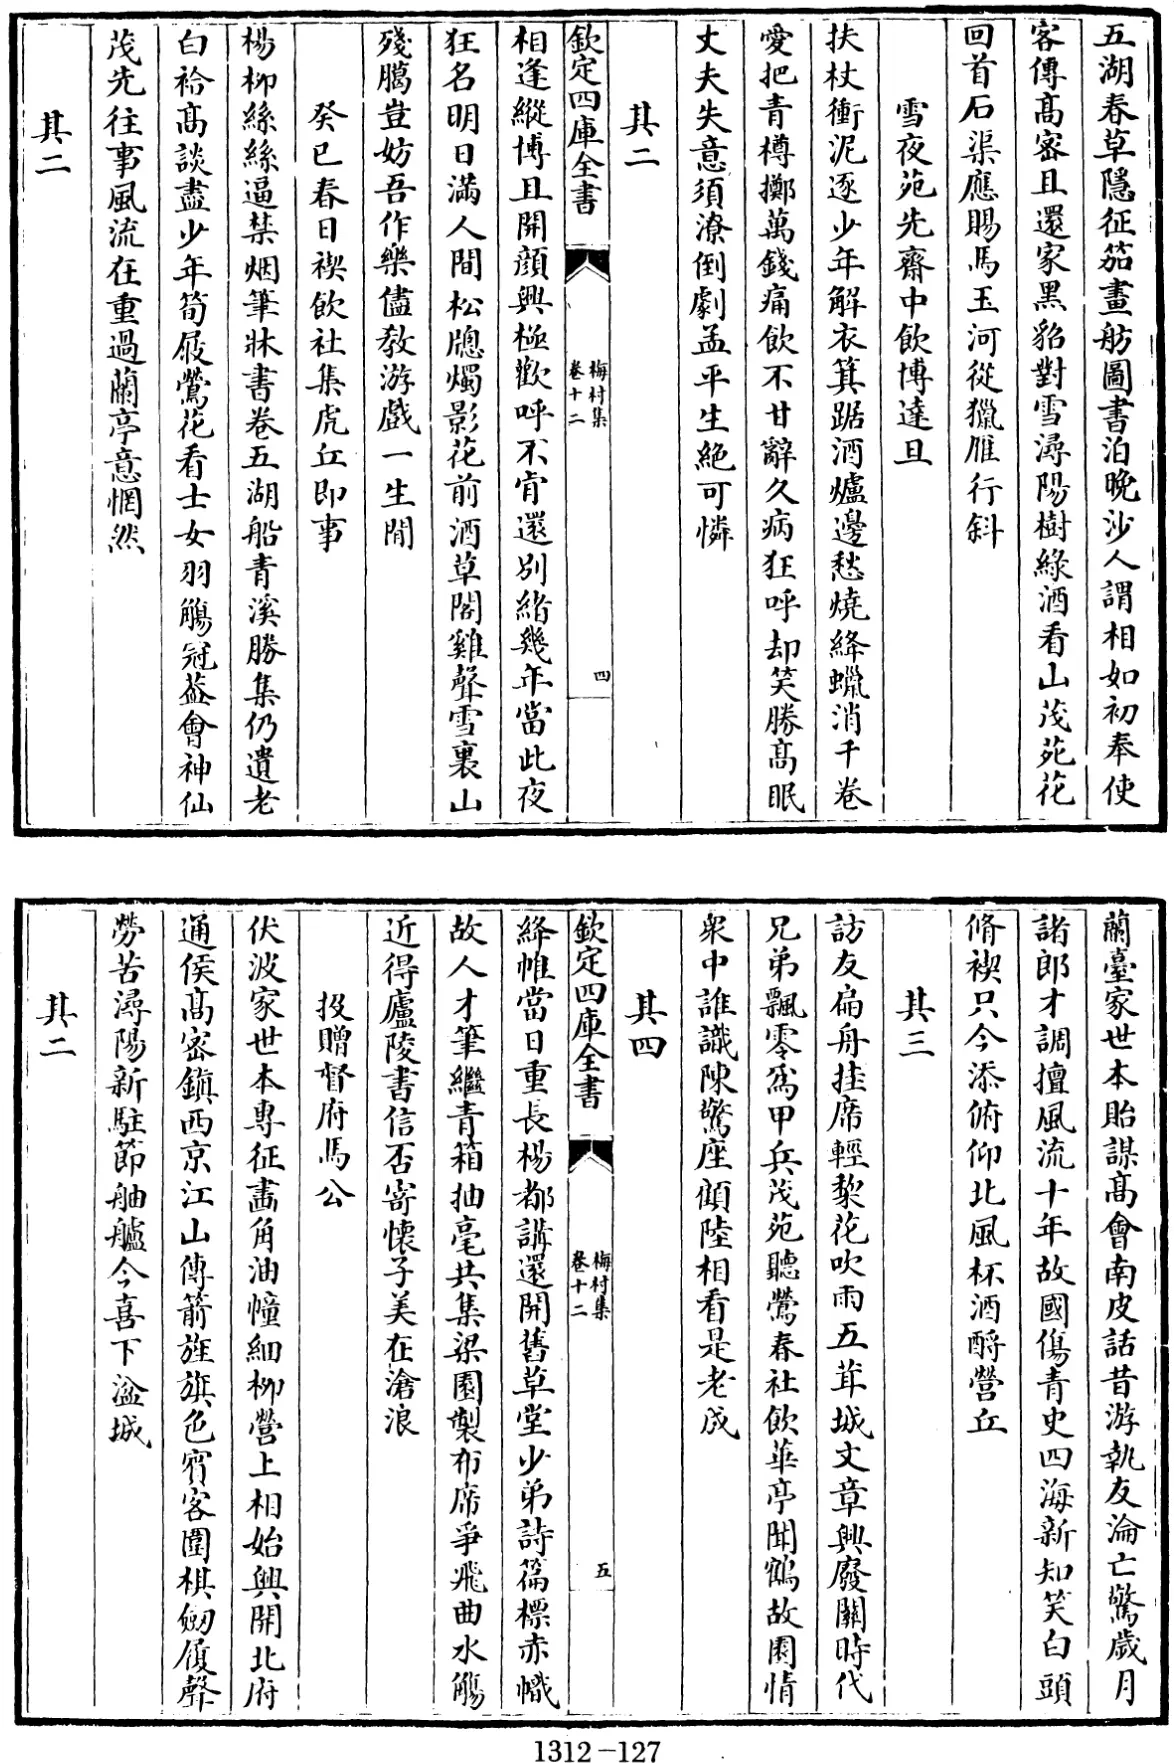 五湖春草隱征笳畫舫圖書泊晚沙人謂相如初奉使
客傳髙密且還家黑貂對雪潯陽樹綠酒看山茂苑花
回首石渠應賜馬玉河從獵雁行斜
雪夜苑先齋中飲博達旦
扶杖衝泥逐少年解衣箕踞酒爐邊愁燒絳蠟消千卷
愛把青樽擲萬錢痛飲不甘辭久病狂呼却笑勝髙眠
丈夫失意須潦倒劇孟平生絶可憐
其二
欽定四庫全書
梅村集
卷十二
四
相逢縱博且開顔興極歡呼不肯還別緒幾年當此夜
狂名明日滿人間松牕燭影花前酒草閣雞聲雪裏山
殘臈豈妨吾作樂儘教游戲一生閒
癸巳春日禊飲社集虎丘即事
楊柳絲絲逼禁烟筆牀書卷五湖船青溪勝集仍遺老
白袷髙談盡少年筍屐鶯花看士女羽觴冠葢會神仙
茂先往事風流在重過蘭亭意惘然
其二
蘭臺家世本貽謀髙會南皮話昔游執友淪亡驚歲月
諸郎才調擅風流十年故國傷青史四海新知笑白頭
脩禊只今添俯仰北風杯酒酹營丘
其三
訪友扁舟挂席輕棃花吹雨五茸城文章興廢關時代
兄弟飄零為甲兵茂苑聽鶯春社飲華亭聞鶴故園情
衆中誰識陳驚座顧陸相看是老成
其四
欽定四庫全書
梅村集
卷十二
五
絳帷當日重長楊都講還開舊草堂少弟詩篇標赤幟
故人才筆繼青箱抽毫共集梁園製布席爭飛曲水觴
近得廬陵書信否寄懷子美在滄浪
投贈督府馬公
伏波家世本專征畵角油幢細柳營上相始興開北府
通侯髙密鎮西京江山傳箭旌旗色賓客圍棋劒履聲
勞苦潯陽新駐節舳艫今喜下湓城
其二
1312-127